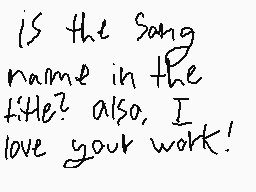 is the song
name in the
title? also, I
love your work!